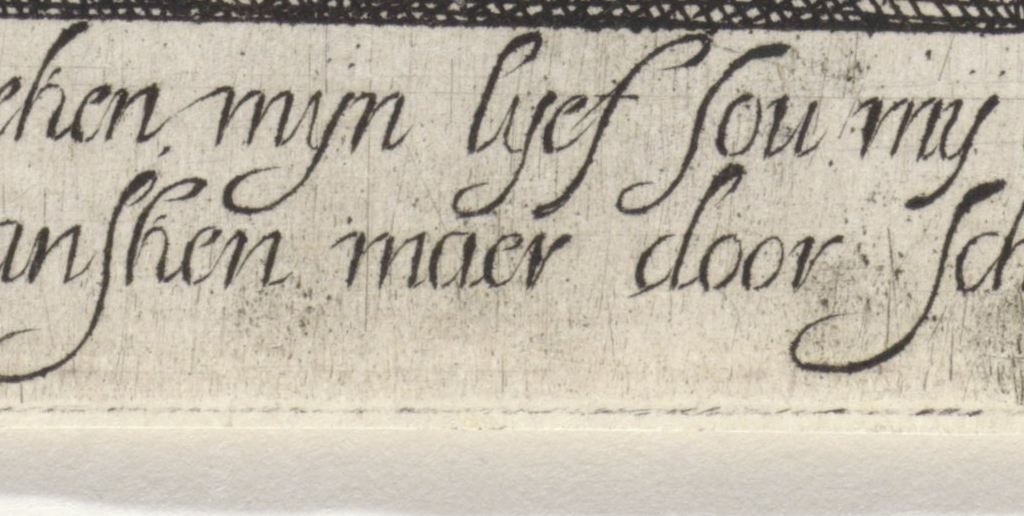 eken myn lyef sou my
ansken maer door sch